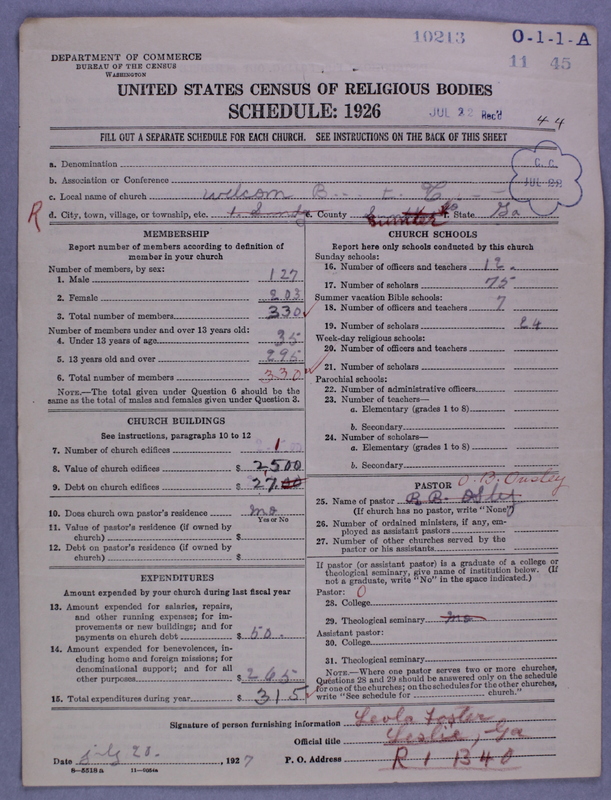 10213 O-1-1-A
11 45
DEPARTMENT OF COMMERCE
BUREAU OF THE CENSUS
WASHINGTON
UNITED STATES CENSUS OF RELIGIOUS BODIES
SCHEDULE: 1926
JUL 22 Rec'd
44
FILL OUT A SEPARATE SCHEDULE FOR EACH CHURCH. SEE INSTRUCTIONS ON THE BACK OF THIS SHEET
C. C.
JUL 22
a. Denomination
b. Association or Conference
c. Local name of church Welcom B
R d. City, town, village, or township, etc. e. County Sumter f. State Ga
MEMBERSHIP
Report number of members according to definition of member in your church
Number of members, by sex:
1. Male 127
2. Female 203
3. Total number of members 330
Number of members under and over 13 years old:
4. Under 13 years of age 35
5. 13 years old and over 295
6. Total number of members 330
NOTE.—The total given under Question 6 should be the same as the total of males and females given under Question 3.
CHURCH BUILDINGS
See instructions, paragraphs 10 to 12
7. Number of church edifices 1
8. Value of church edifices $ 2,500
9. Debt on church edifices $ 27.00
10. Does church own pastor's residence? no
Yes or No
11. Value of pastor's residence (if owned by church) $
12. Debt on pastor's residence (if owned by church) $
EXPENDITURES
Amount expended by your church during last fiscal year
13. Amount expended for salaries, repairs, and other running expenses; for improvements or new buildings; and for payments on church debt $ 50.
14. Amount expended for benevolences, including home and foreign missions; for denominational support; and for all other purposes $ 265
15. Total expenditures during year $ 315
CHURCH SCHOOLS
Report here only schools conducted by this church
Sunday schools:
16. Number of officers and teachers 12
17. Number of scholars 75
Summer vacation Bible schools:
18. Number of officers and teachers 7
19. Number of scholars 24
Week-day religious schools:
20. Number of officers and teachers
21. Number of scholars
Parochial schools:
22. Number of administrative officers
23. Number of teachers—
a. Elementary (grades 1 to 8)
b. Secondary
24. Number of scholars—
a. Elementary (grades 1 to 8)
b. Secondary
PASTOR O. B. Ousley
25. Name of pastor
(If church has no pastor, write "None")
26. Number of ordained ministers, if any, employed as assistant pastors
27. Number of other churches served by the pastor or his assistants
If pastor (or assistant pastor) is a graduate of a college or theological seminary, give name of institution below. (If not a graduate, write "No" in the space indicated.)
Pastor: 0
28. College
29. Theological seminary no
Assistant pastor:
30. College
31. Theological seminary
NOTE.—Where one pastor serves two or more churches, Questions 28 and 29 should be answered only on the schedule for one of the churches; on the schedules for the other churches, write "See schedule for church."
Signature of person furnishing information Leola Foster
Official title Leslie, Ga
Date July 20. , 1927 P. O. Address R 1 B 40
8-5518a 11-9084a